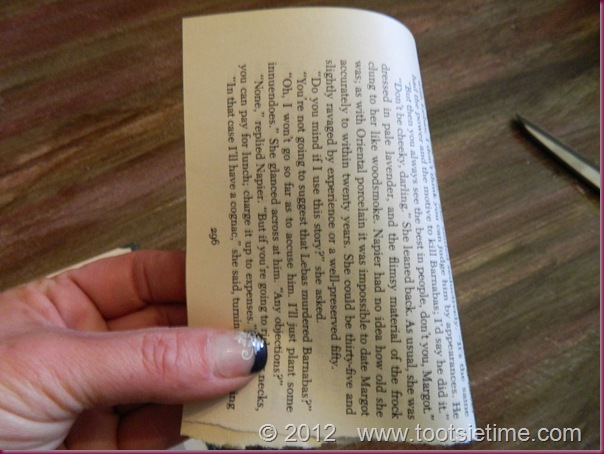 it's the same
can judge him by appearances. He
had the power and the motive to kill Barnabas; I'd say he did it."
"But then you always see the best in people, don't you, Margot."
"Don't be cheeky, darling." She leaned back. As usual, she was
dressed in pale lavender, and the flimsy material of the frock
clung to her like woodsmoke. Napier had no idea how old she
was; as with Oriental porcelain it was impossible to date Margot
accurately to within twenty years. She could be thirty-five and
slightly ravaged by experience or a well-preserved fifty.
"Do you mind if I use this story?" she asked.
"You're not going to suggest that Lebas murdered Barnabas?"
"Oh, I won't go so far as to accuse him. I'll just plant some
innuendoes." She glanced across at him. "Any objections?"
"None," replied Napier. "But if you're going to necks,
you can pay for lunch; charge it up to expenses.
"In that case I'll have a cognac," she said,
296
© 2012 www.tootsietime.com